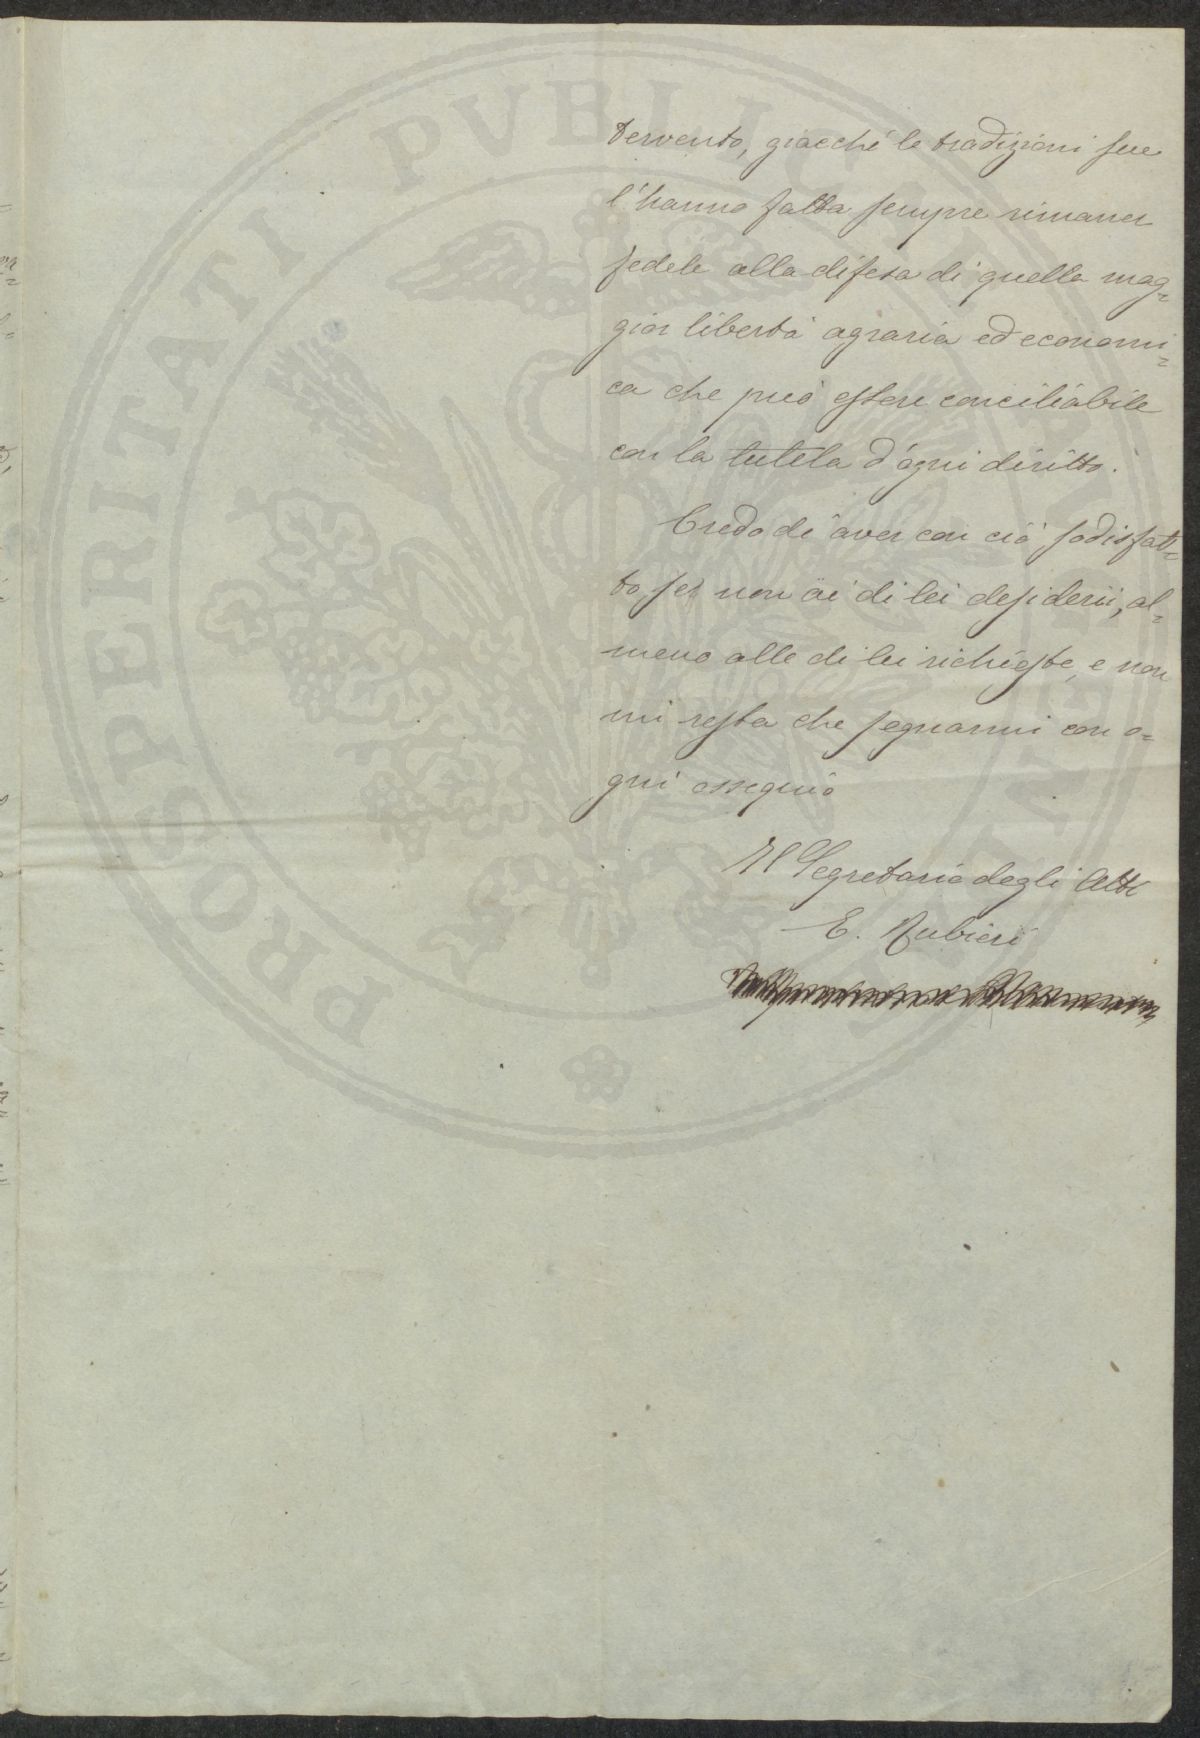 tervento, giacché le tradizioni sue
l'hanno fatta sempre rimaner
fedele alla difesa di quella mag=
gior libertà agraria ed economi=
ca che può essere conciliabile
con la tutela d'ogni diritto.
Credo di aver con ciò sodisfat=
to, se non ai di lei desiderii, al=
meno alle di lei richieste, e non
mi resta che segnarmi con o=
gni ossequio
Il Segretario degli Atti
E. Rubieri
PROSPERITATI PVBLICAE